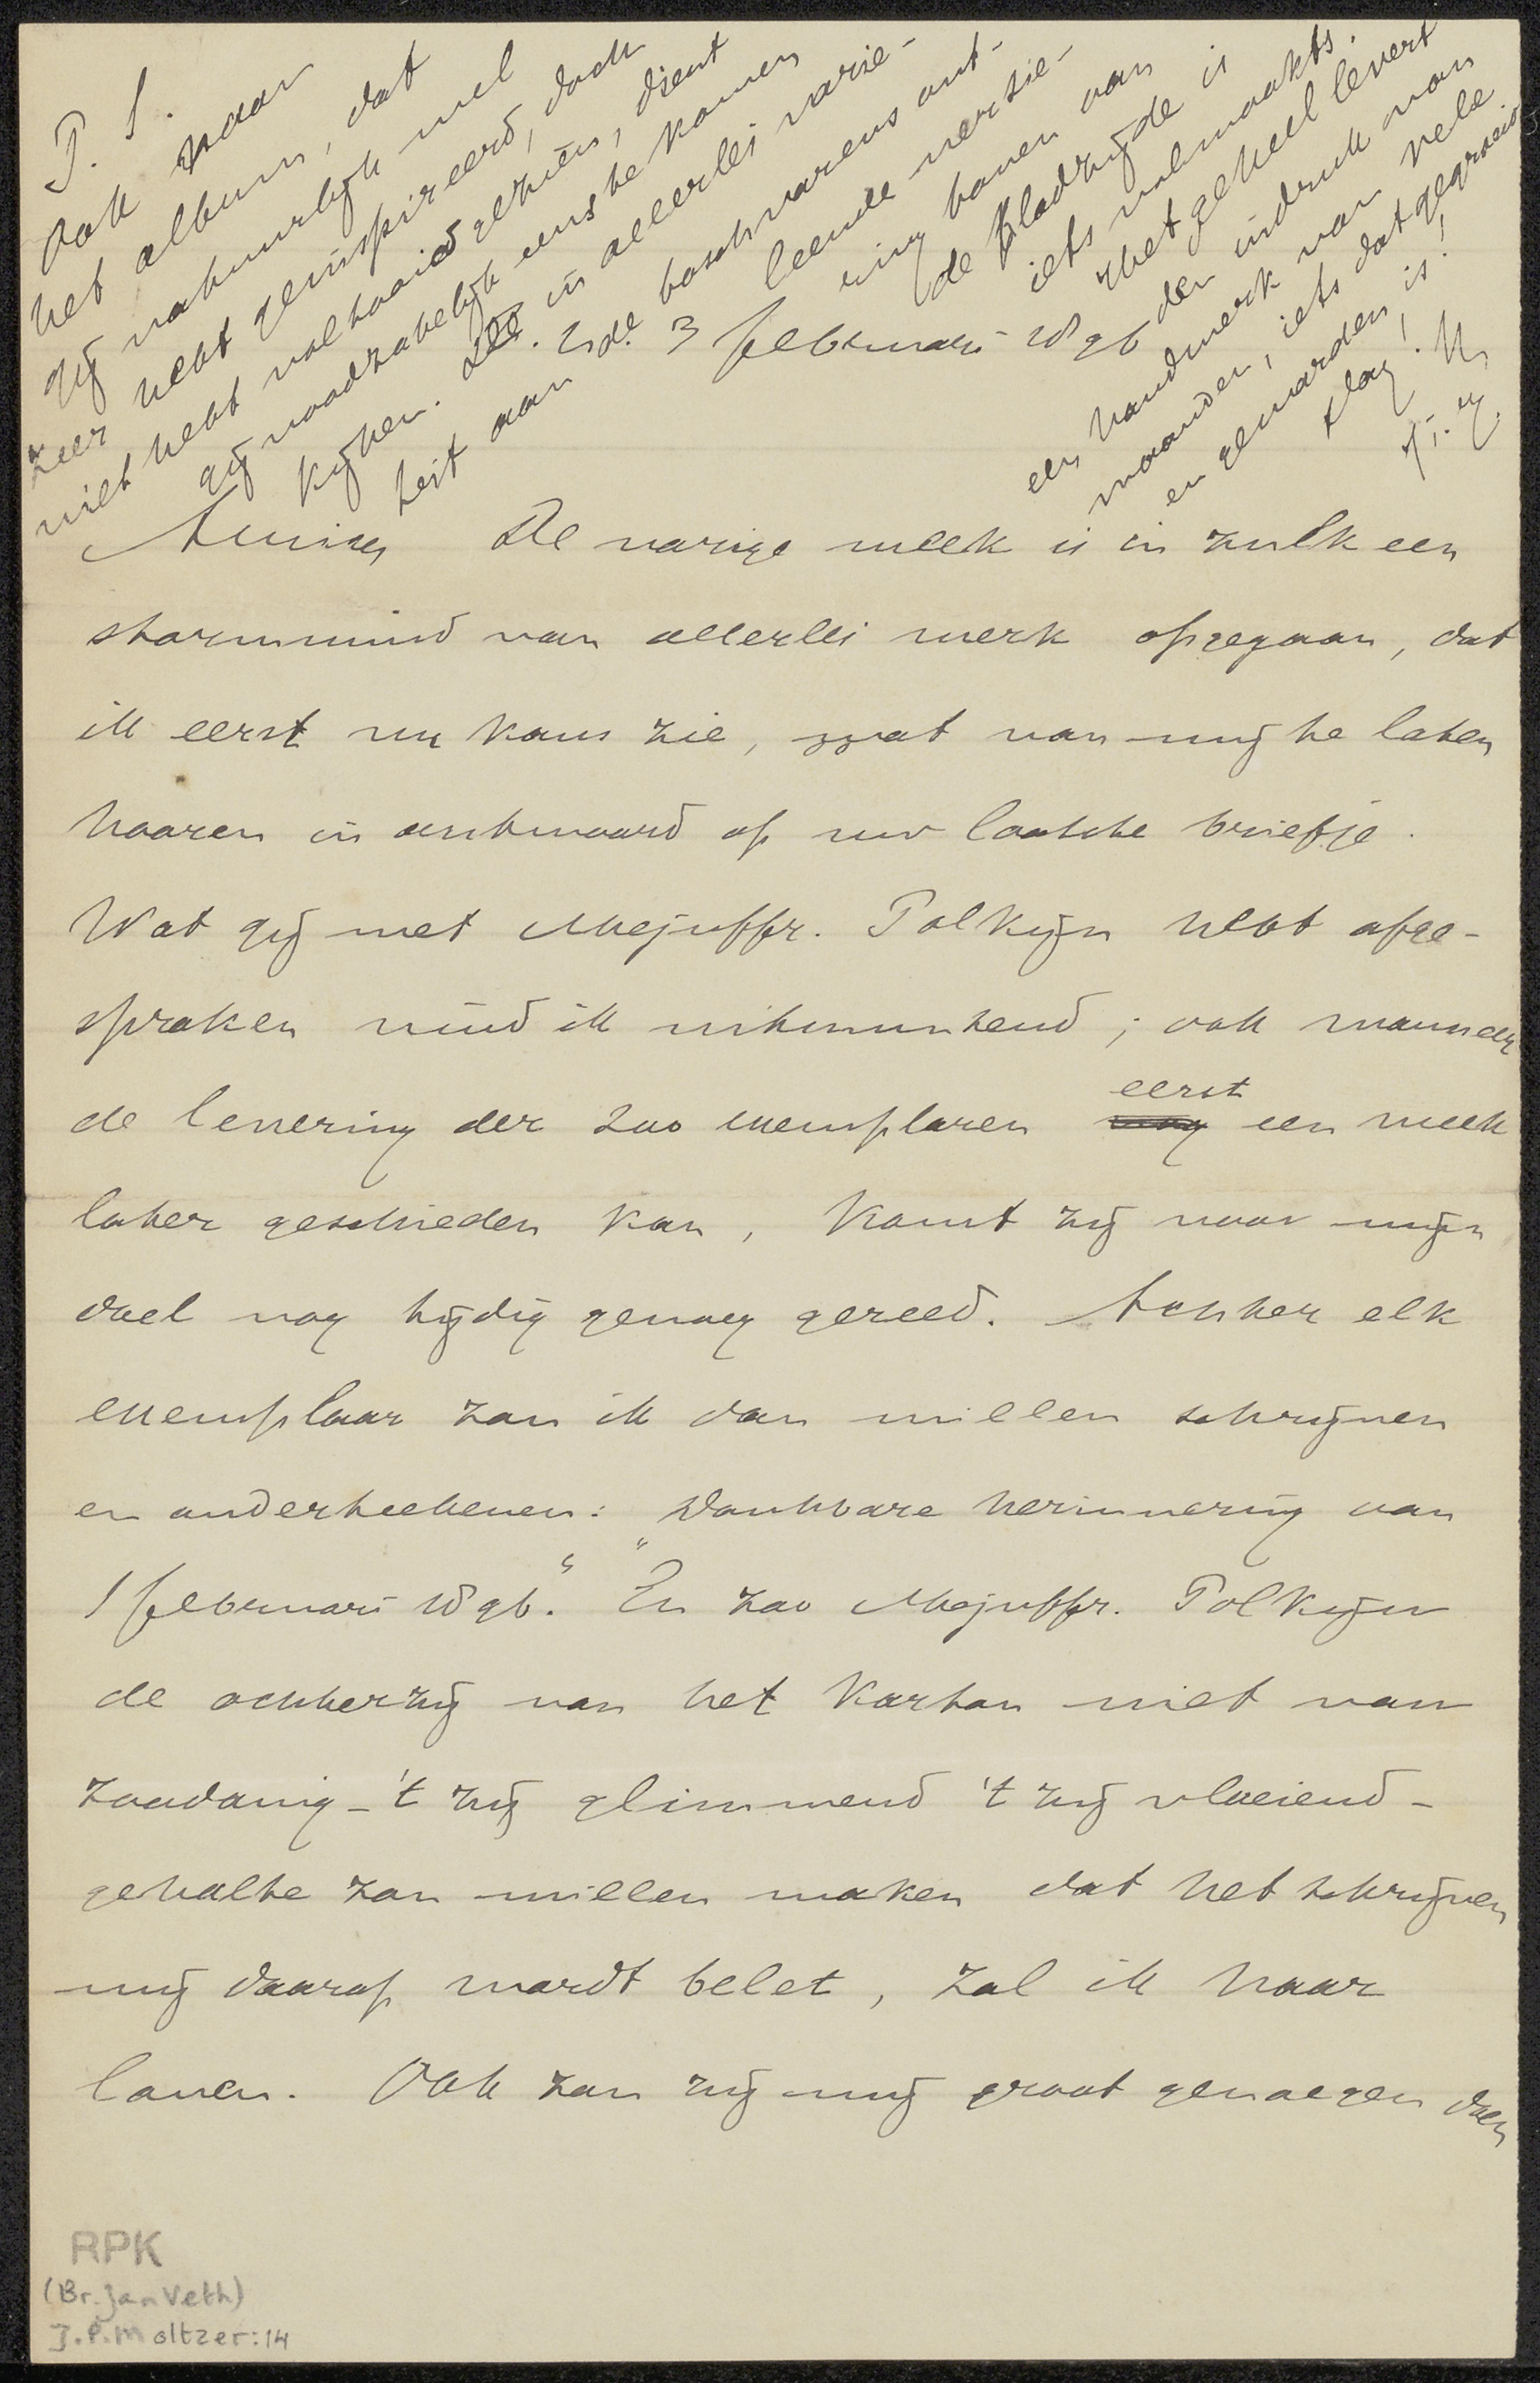 P. S.
Ook naar
het album, dat
gij natuurlijk wel
zeer hebt geïnspireerd, doch
niet hebt voltooid gezien, dient
gij noodzakelijk eens te komen
kijken. De in allerlei varie-
teit aan boschvarens ont-
leende versie-
ring boven aan
de bladzijde is
iets volmaakts.
Het geheel levert
den indruk van
een handwerk van vele
maanden, iets dat gegroeid
en geworden is!
Slag!
t. M.
3 februari 1896
Amice, De vorige week is in zulk een
stormwind van allerlei werk opgegaan, dat
ik eerst nu kans zie, wat van mij te laten
hooren in antwoord op uw laatste briefje.
Wat gij met Mejuffr. Polkijn hebt afge-
sproken vind ik uitmuntend; ook wanneer
de levering der 200 exemplaren eerst een week
later geschieden kan, komt zij voor mijn
doel nog tijdig genoeg gereed. Achter elk
exemplaar zou ik dan willen schrijven
en onderteekenen: "Dankbare herinnering aan
1 februari 1896." En zoo Mejuffr. Polkijn
de achterzij van het karton niet van
zoodanig - 't zij glimmend 't zij vloeiend -
gehalte zou willen maken dat het schrijven
mij daarop wordt belet, zal ik haar
loven. Ook zou zij mij groot genoegen doen
RPK
(Br. Jan Veth)
J.P. Moltzer: 14